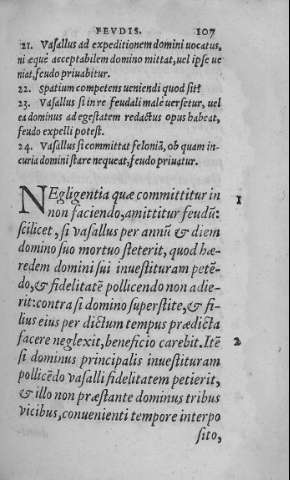 FEVDIS. 107
21. Vasallus ad expeditionem domini uocatus,
ni æquè acceptabilem domino mittat, uel ipse ue
niat, feudo priuabitur.
22. Spatium competens ueniendi quod sit?
23. Vasallus si in re feudali male uersetur, uel
ea dominus ad egestatem redactus opus habeat,
feudo expelli potest.
24. Vasallus si committat feloniã, ob quam in
curia domini stare nequeat, feudo priuatur.
NEgligentia quæ committitur in 1
non faciendo, amittitur feudũ:
scilicet, si vasallus per annũ & diem
domino suo mortuo steterit, quod hæ-
redem domini sui inuestituram petẽ-
do, & fidelitatẽ pollicendo non adie-
rit: contra si domino superstite, & fi-
lius eius per dictum tempus prædicta
facere neglexit, beneficio carebit. Itẽ 2
si dominus principalis inuestituram
pollicẽdo vasalli fidelitatem petierit,
& illo non præstante dominus tribus
vicibus, conuenienti tempore interpo
sito,